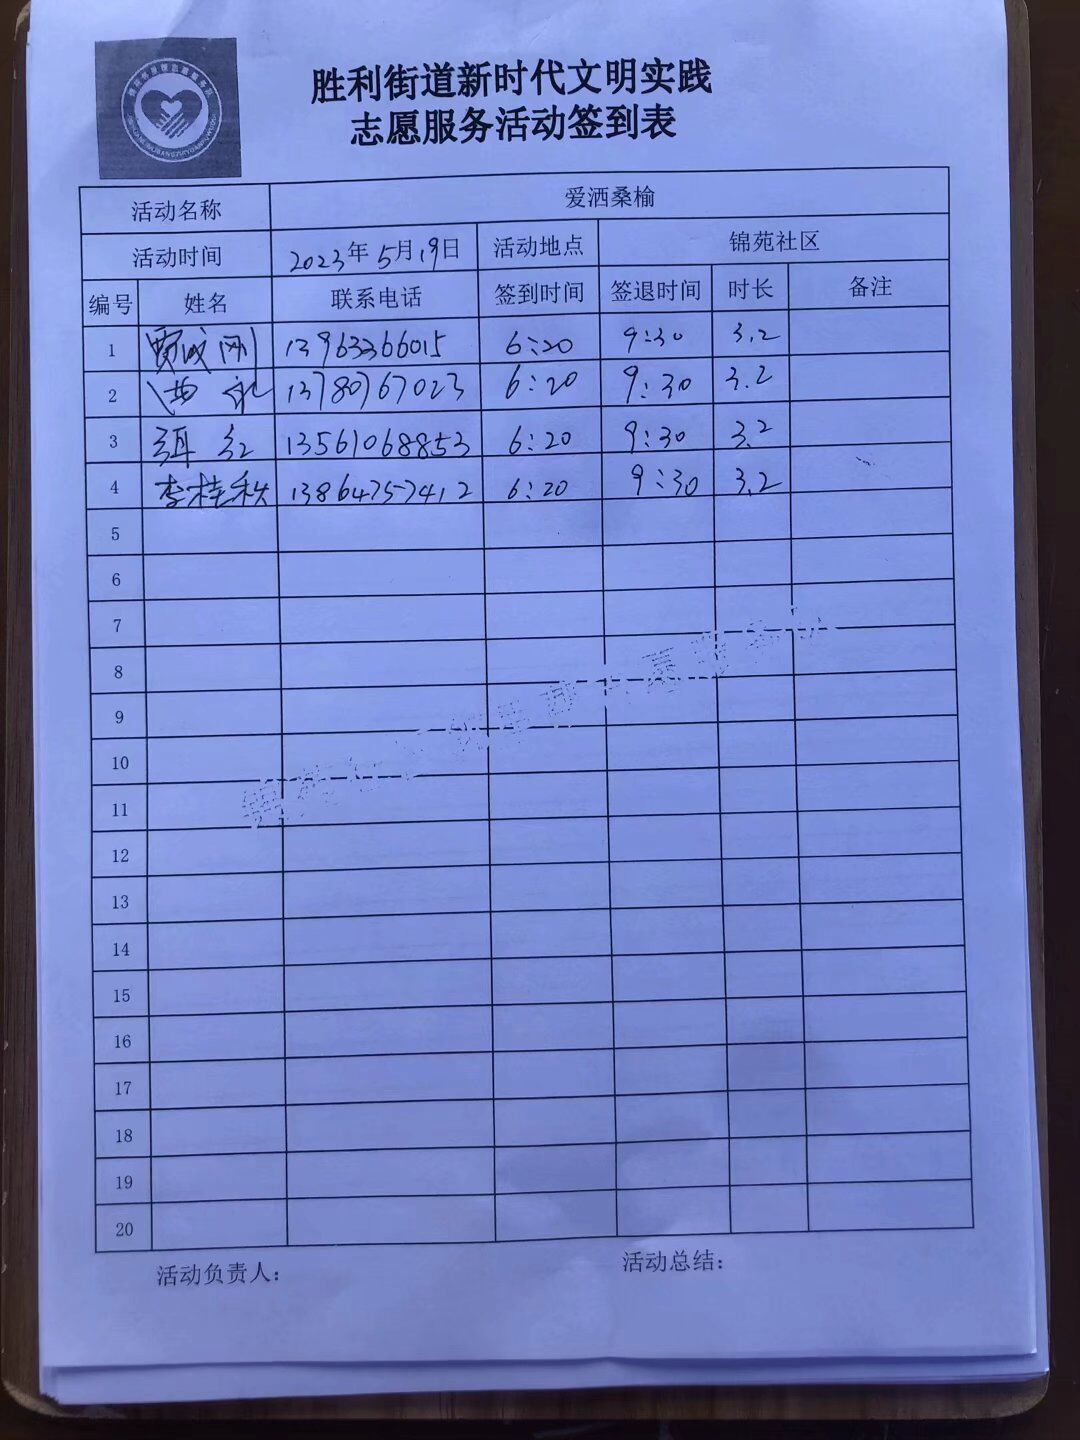 胜利街道新时代文明实践
志愿服务活动签到表
活动名称 爱洒桑榆
活动时间 2023年5月19日 活动地点 锦苑社区
编号 姓名 联系电话 签到时间 签退时间 时长 备注
1 贾成刚 13963366015 6:20 9:30 3.2
2 13780767023 6:20 9:30 3.2
3 13561068853 6:20 9:30 3.2
4 李桂秋 13864757412 6:20 9:30 3.2
5
6
7
8
9
10
11
12
13
14
15
16
17
18
19
20
活动负责人: 活动总结: